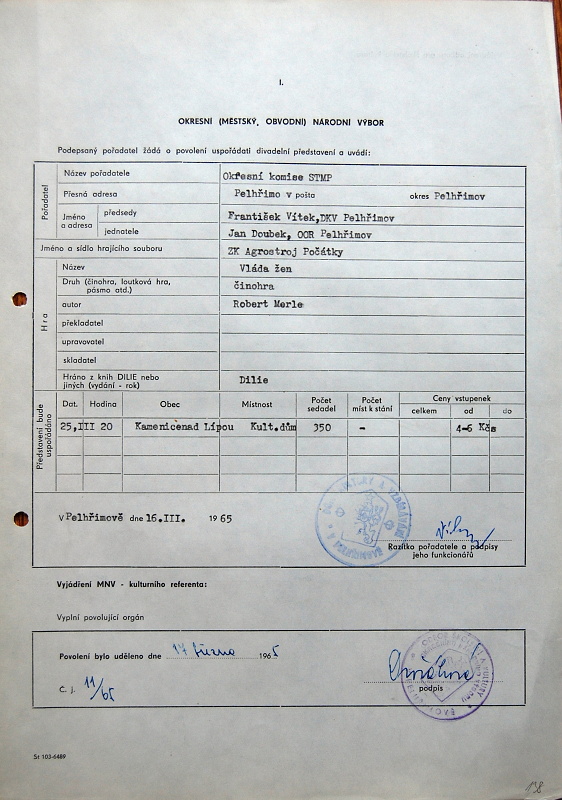 I.
OKRESNÍ (MĚSTSKÝ, OBVODNÍ) NÁRODNÍ VÝBOR
Podepsaný pořadatel žádá o povolení uspořádati divadelní představení a uvádí:
Pořadatel
Název pořadatele Okresní komise STMP
Přesná adresa Pelhřimo v pošta okres Pelhřimov
Jméno a adresa
předsedy František Vítek,DKV Pelhřimov
jednatele Jan Doubek, OOR Pelhřimov
Jméno a sídlo hrajícího souboru ZK Agrostroj Počátky
Hra
Název Vláda žen
Druh (činohra, loutková hra, pásmo atd.) činohra
autor Robert Merle
překladatel
upravovatel
skladatel
Hráno z knih DILIE nebo jiných (vydání - rok) Dilie
Představení bude uspořádáno
Dat. Hodina Obec Místnost Počet sedadel Počet míst k stání Ceny vstupenek
celkem od do
25,III 20 Kamenicenad Lipou Kult.dům 350 - 4-6 Kčs
V Pelhřimově dne 16.III. 1965
Razítko pořadatele a podpisy
jeho funkcionářů
Vyjádření MNV - kulturního referenta:
Vyplní povolující orgán
Povolení bylo uděleno dne 17 března 1965
Č. j. 11/65
podpis
St 103-6489
138